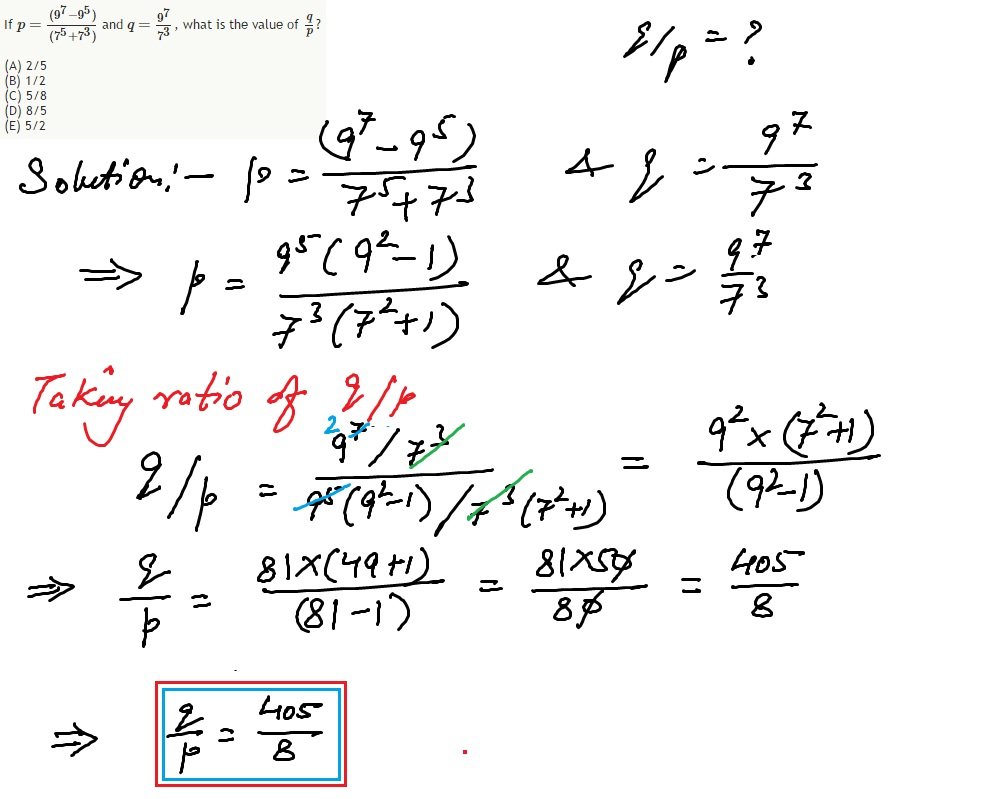 If p = (9^7−9^5)/(7^5+7^3) and q = 9^7/7^3, what is the value of q/p?
(A) 2/5
(B) 1/2
(C) 5/8
(D) 8/5
(E) 5/2
q/p = ?
Solution:- p = (9^7 - 9^5)/(7^5 + 7^3) & q = 9^7/7^3
⇒ p = 9^5 (9^2 - 1)/(7^3 (7^2 + 1)) & q = 9^7/7^3
Taking ratio of q/p
q/p = (9^7 2 / 7^3)/(9^5 (9^2 - 1) / 7^3 (7^2 + 1)) = (9^2 × (7^2 + 1))/(9^2 - 1)
⇒ q/p = (81 × (49 + 1))/(81 - 1) = (81 × 50)/80 = 405/8
⇒ q/p = 405/8